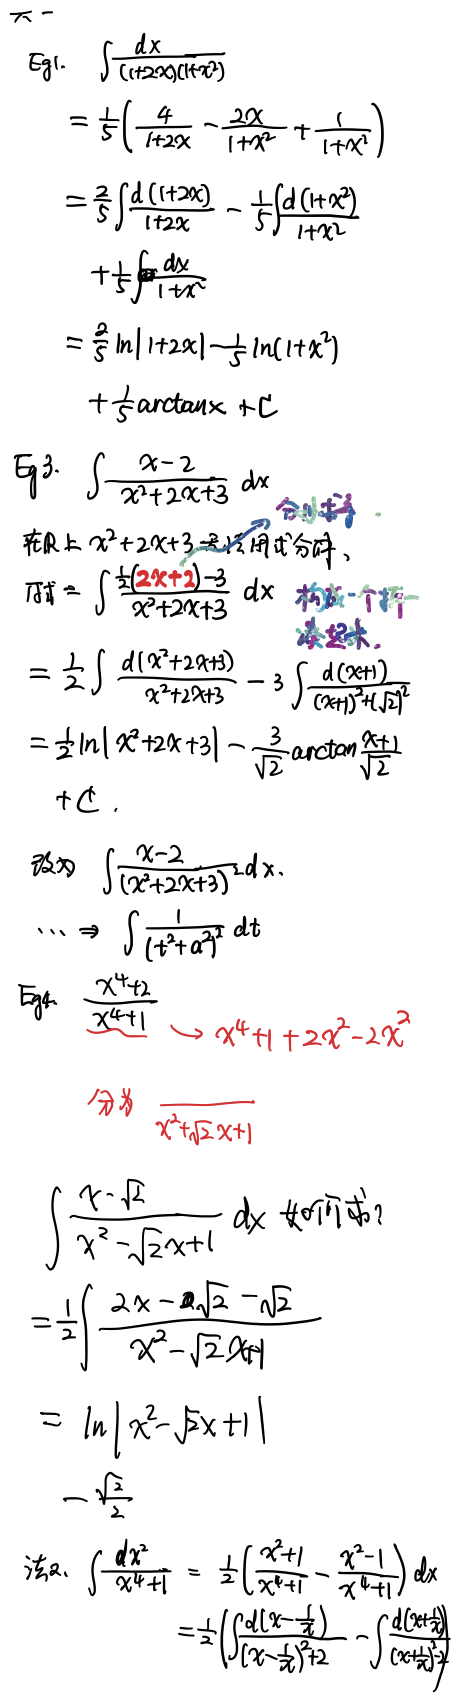 六一
Eg1. ∫ dx/((1+2x)(1+x²))
= 1/5 ( 4/(1+2x) - 2x/(1+x²) + 1/(1+x²) )
= 2/5 ∫ d(1+2x)/(1+2x) - 1/5 ∫ d(1+x²)/(1+x²)
+ 1/5 ∫ dx/(1+x²)
= 2/5 ln|1+2x| - 1/5 ln(1+x²)
+ 1/5 arctanx + C
Eg3. ∫ (x-2)/(x²+2x+3) dx
在R上 x²+2x+3
原式 = ∫ (1/2(2x+2)-3)/(x²+2x+3) dx
= 1/2 ∫ d(x²+2x+3)/(x²+2x+3) - 3 ∫ d(x+1)/((x+1)²+(√2)²)
= 1/2 ln|x²+2x+3| - 3/√2 arctan (x+1)/√2
+ C.
改为 ∫ (x-2)/(x²+2x+3)² dx.
... ⇒ ∫ 1/(t²+a²)² dt
Eg4. (x⁴+2)/(x⁴+1) → x⁴+1+2x²-2x²
分为 /(x²+√2x+1)
∫ (x-√2)/(x²-√2x+1) dx 如何求?
= 1/2 ∫ (2x-√2-√2)/(x²-√2x+1)
= ln|x²-√2x+1|
- √2/2
法2. ∫ dx²/(x⁴+1) = 1/2 ( (x²+1)/(x⁴+1) - (x²-1)/(x⁴+1) ) dx
= 1/2 ( ∫ d(x-1/x)/((x-1/x)²+2) - ∫ d(x+1/x)/((x+1/x)²-2) )